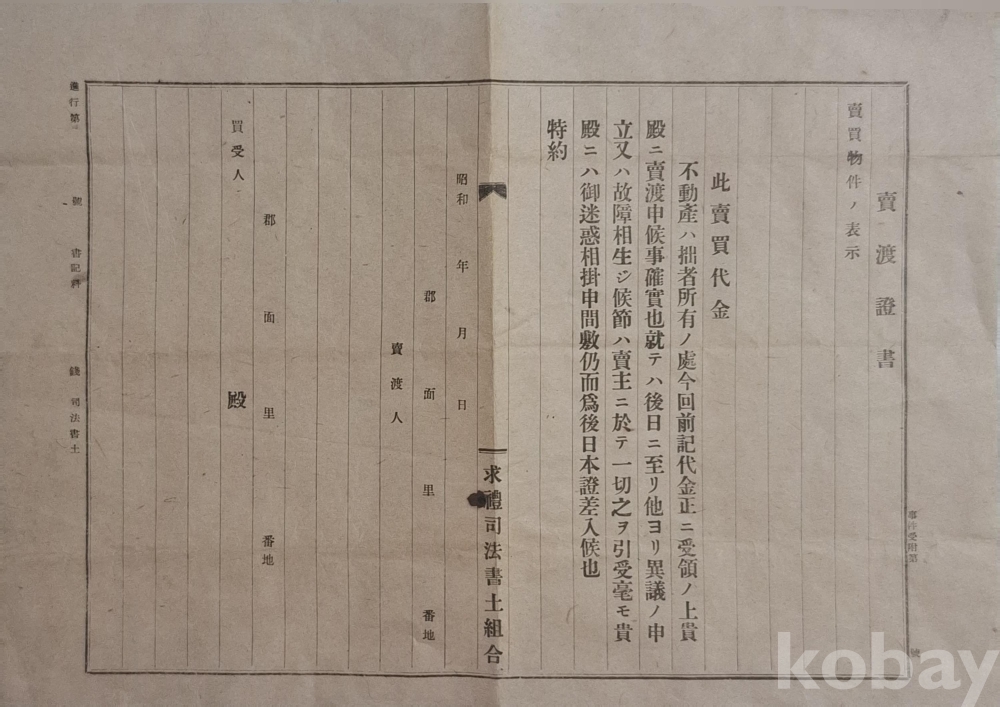 賣渡證書
賣買物件ノ表示
此賣買代金
不動產ハ拙者所有ノ處今回前記代金正ニ受領ノ上貴
殿ニ賣渡申候事確實也就テハ後日ニ至リ他ヨリ異議ノ申
立又ハ故障相生シ候節ハ賣主ニ於テ一切之ヲ引受毫モ貴
殿ニハ御迷惑相掛申間敷仍而爲後日本證差入候也
特約
求禮司法書士組合
昭和 年 月 日
郡 面 里 番地
賣渡人
郡 面 里 番地
買受人 殿
進行第 號 書記料 錢 司法書士
事件受附第 號
kobay